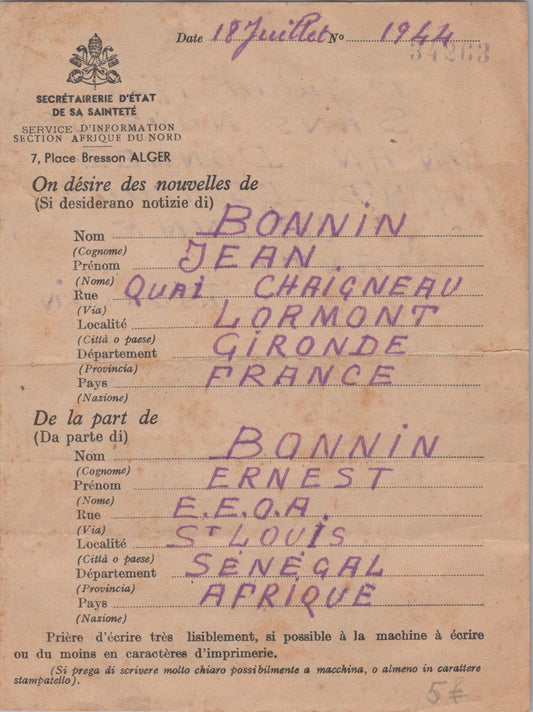 Date 18 Juillet No 1944
34263
SECRÉTAIRERIE D'ÉTAT
DE SA SAINTETÉ
SERVICE D'INFORMATION
SECTION AFRIQUE DU NORD
7, Place Bresson ALGER
On désire des nouvelles de
(Si desiderano notizie di)
Nom BONNIN
(Cognome)
Prénom JEAN.
(Nome)
Rue QUAI CHAIGNEAU
(Via)
Localité LORMONT
(Città o paese)
Département GIRONDE
(Provincia)
Pays FRANCE
(Nazione)
De la part de
(Da parte di)
Nom BONNIN
(Cognome)
Prénom ERNEST
(Nome)
Rue E.E.O.A.
(Via)
Localité ST LOUIS
(Città o paese)
Département SÉNÉGAL
(Provincia)
Pays AFRIQUE
(Nazione)
Prière d'écrire très lisiblement, si possible à la machine à écrire
ou du moins en caractères d'imprimerie.
(Si prega di scrivere molto chiaro possibilmente a macchina, o almeno in carattere
stampatello).
5€